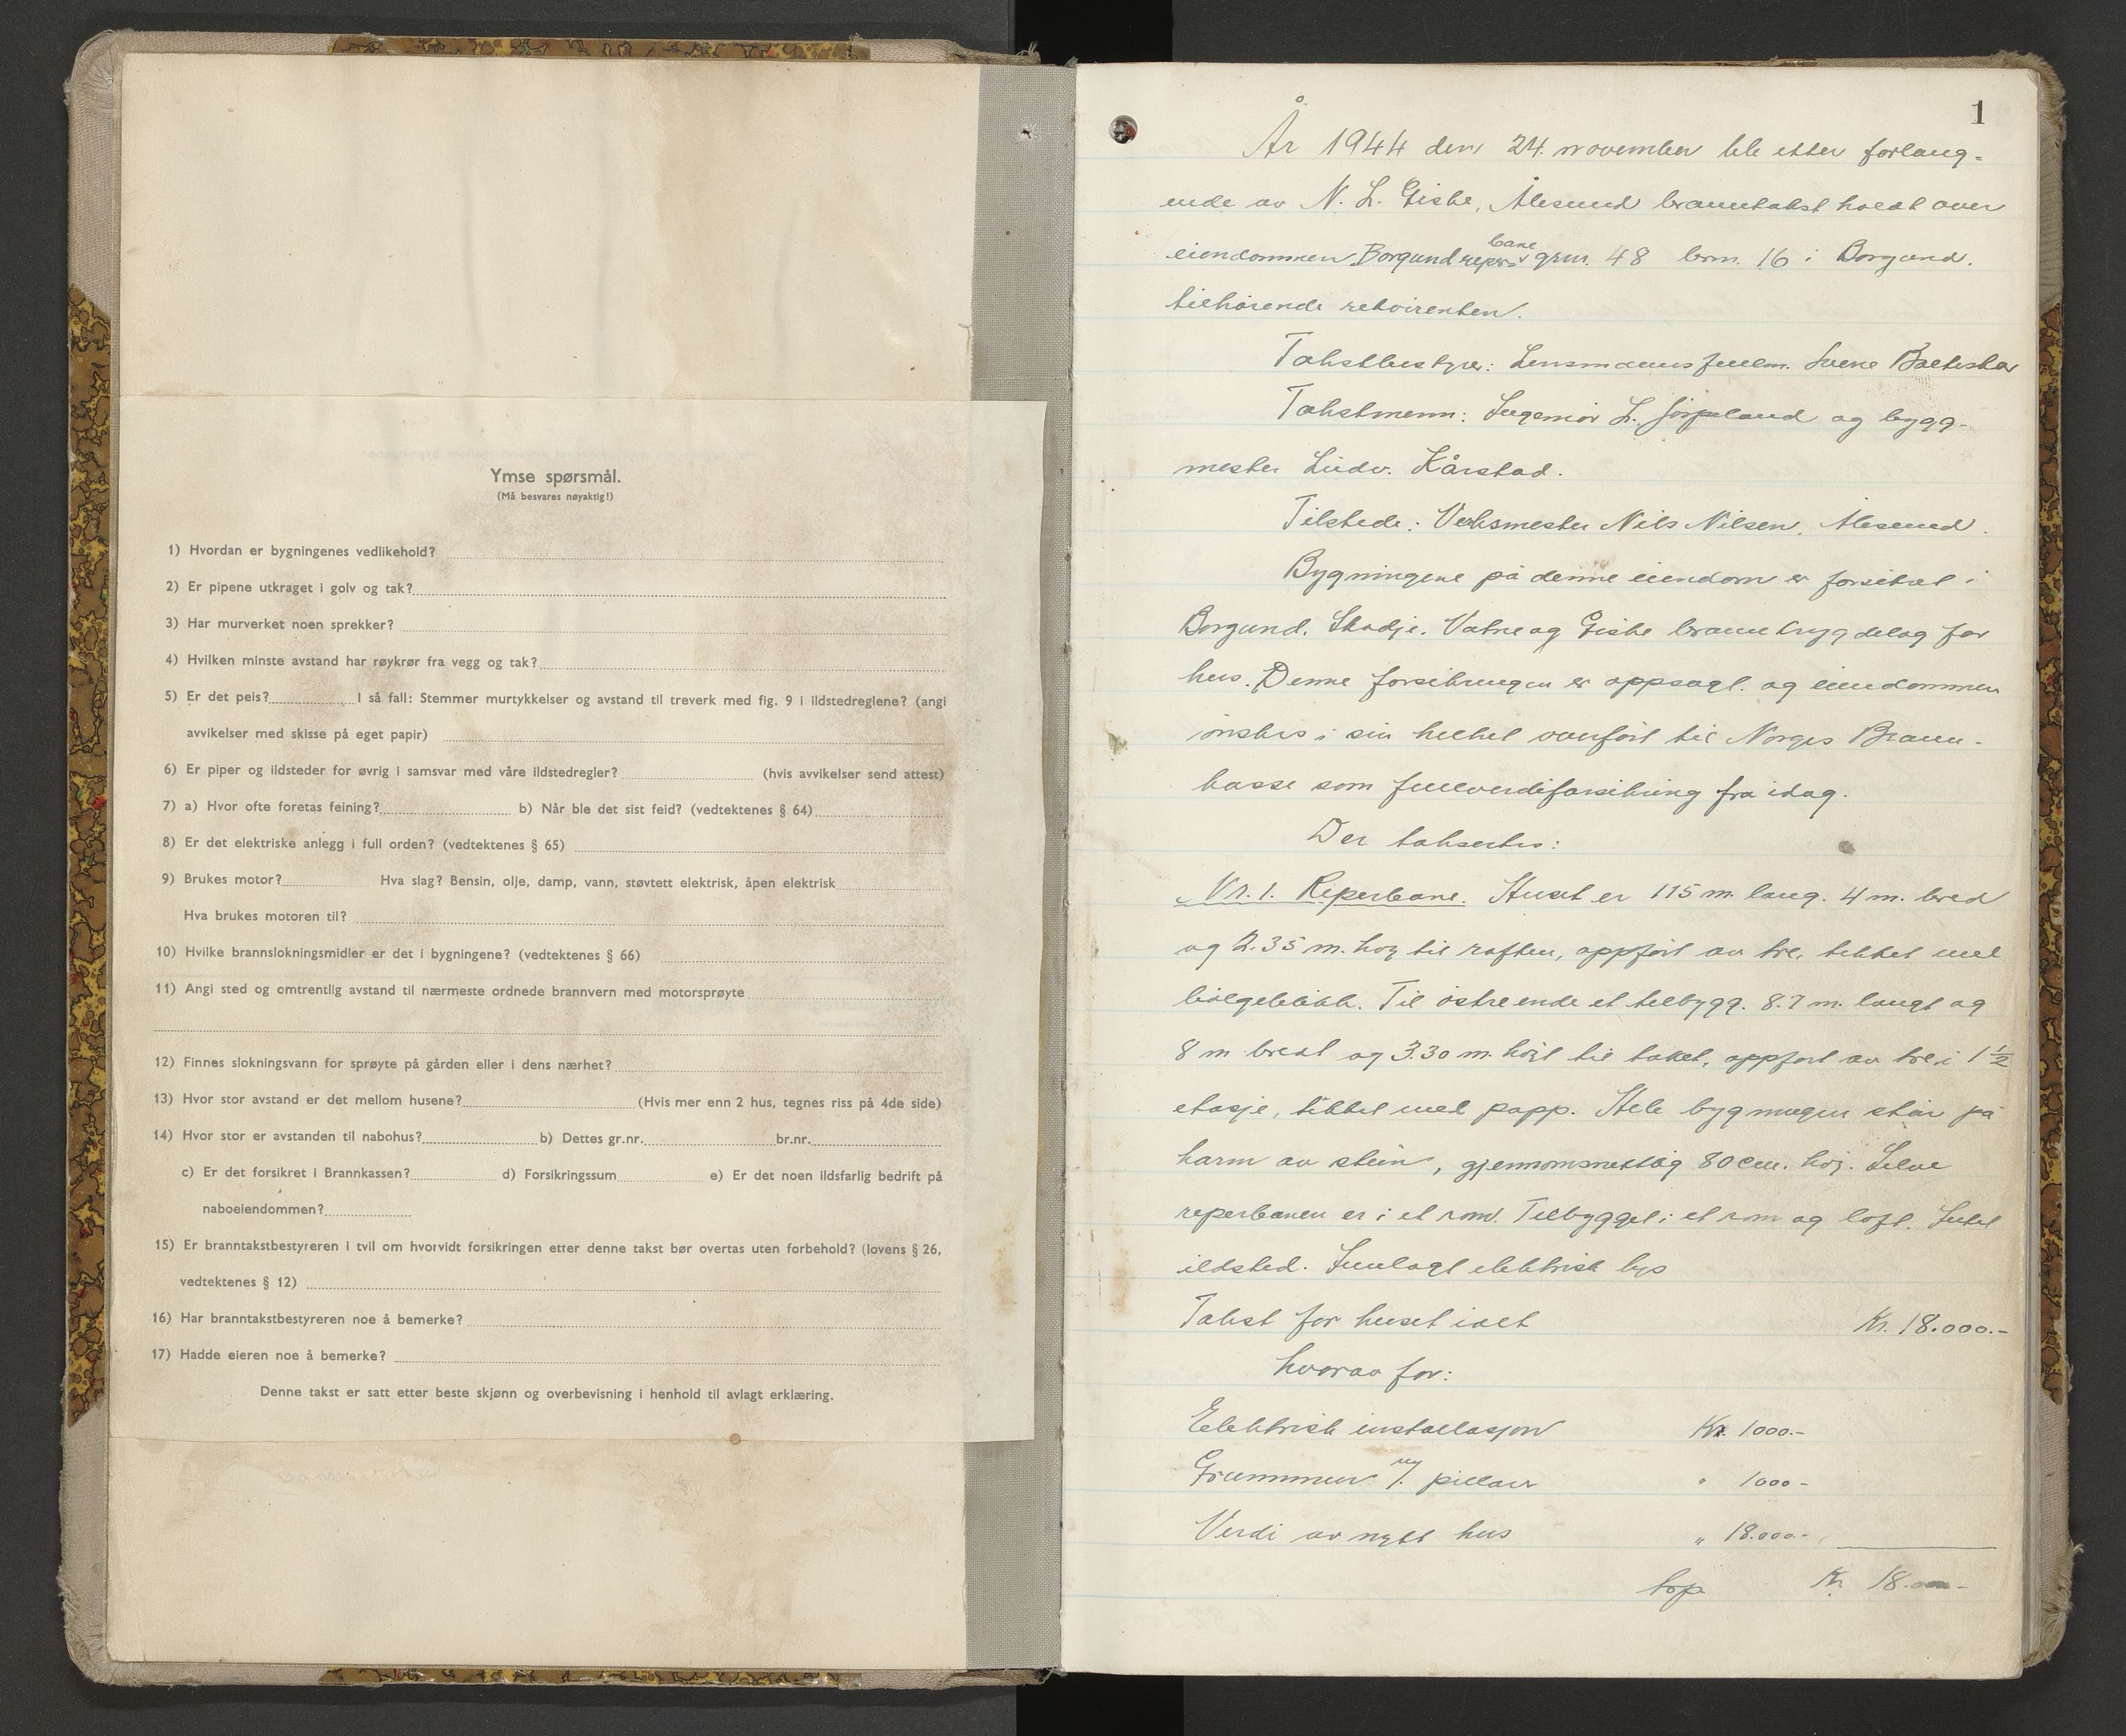 Ymse spørsmål.
(Må besvares nøyaktig!)
1) Hvordan er bygningenes vedlikehold?
2) Er pipene utkraget i golv og tak?
3) Har murverket noen sprekker?
4) Hvilken minste avstand har røykrør fra vegg og tak?
5) Er det peis? I så fall: Stemmer murtykkelser og avstand til treverk med fig. 9 i ildstedreglene? (angi
avvikelser med skisse på eget papir)
6) Er piper og ildsteder for øvrig i samsvar med våre ildstedregler? (hvis avvikelser send attest)
7) a) Hvor ofte foretas feining? b) Når ble det sist feid? (vedtektenes § 64)
8) Er det elektriske anlegg i full orden? (vedtektenes § 65)
9) Brukes motor? Hva slag? Bensin, olje, damp, vann, støvtett elektrisk, åpen elektrisk
Hva brukes motoren til?
10) Hvilke brannslokningsmidler er det i bygningene? (vedtektenes § 66)
11) Angi sted og omtrentlig avstand til nærmeste ordnede brannvern med motorsprøyte
12) Finnes slokningsvann for sprøyte på gården eller i dens nærhet?
13) Hvor stor avstand er det mellom husene? (Hvis mer enn 2 hus, tegnes riss på 4de side)
14) Hvor stor er avstanden til nabohus? b) Dettes gr.nr. br.nr.
c) Er det forsikret i Brannkassen? d) Forsikringssum e) Er det noen ildsfarlig bedrift på
naboeiendommen?
15) Er branntakstbestyreren i tvil om hvorvidt forsikringen etter denne takst bør overtas uten forbehold? (lovens § 26,
vedtektenes § 12)
16) Har branntakstbestyreren noe å bemerke?
17) Hadde eieren noe å bemerke?
Denne takst er satt etter beste skjønn og overbevisning i henhold til avlagt erklæring.
1
År 1944 den 24. november ble etter forlang-
ende av N. L. Giske, Ålesund branntakst holdt over
eiendommen Borgund reperbane grnr. 48 brnr. 16 i Borgund.
tilhørende rekvirenten.
Takstbestyrer: Lensmannsfullm. Sverre
Takstmenn: Ingeniør L. Jørpeland og bygg-
mester Ludv. Kårstad.
Tilstede: Verksmester Nils Nilsen, Ålesund.
Bygningene på denne eiendom er forsikret i
Borgund, Skodje, Vatne og Giske branntrygdelag for
hus. Denne forsikringen er oppsagt. og eiendommen
ønskes i sin helhet overført til Norges Brann-
kasse som fullverdiforsikring fra idag.
Der takseres:
Nr. 1. Reperbane. Huset er 115 m. lang. 4 m. bred
og 2.35 m. høg til raften, oppført av tre, tekket med
bølgeblikk. Til østre ende et tilbygg. 8.7 m. langt og
8 m bredt og 3.30 m. høgt til taket, oppført av tre i 1½
etasje, tekket med papp. Hele bygningen står på
karm av stein, gjennomsnittlig 80 cm. høg. Selve
reperbanen er i et rom. Tilbygget i et rom og loft. Intet
ildsted. Innlagt elektrisk lys
Takst for huset ialt Kr. 18.000.-
hvorav for:
Elektrisk installasjon Kr. 1000.-
Grunnmur pillarer " 1000-
Verdi av nytt hus " 18.000.-
trp. Kr. 18.000-